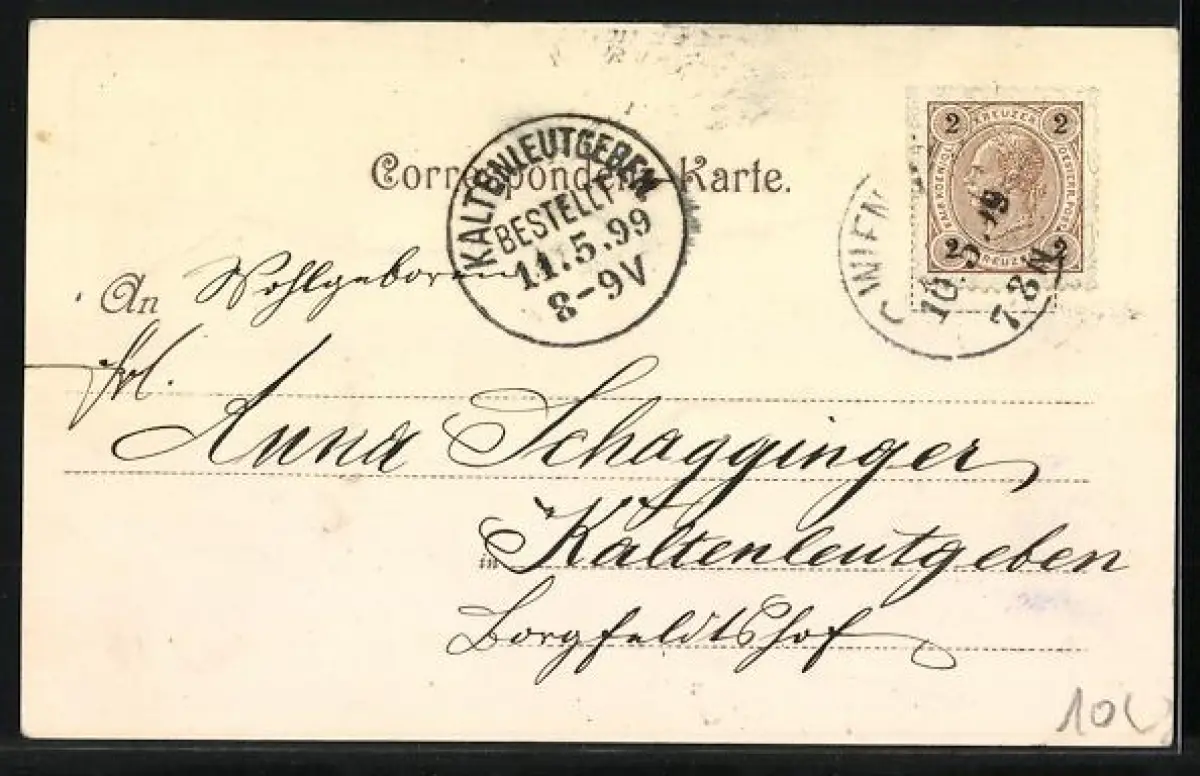 Correspondenz-Karte.
KALTENLEUTGEBEN
BESTELLT
11.5.99
8-9V
2 KREUZER 2
2 KREUZER 2
WIEN
10.5.
7-8 N
An Wohlgeboren
Frl.
Anna Schagginger
in Kaltenleutgeben
Borgfeldtshof